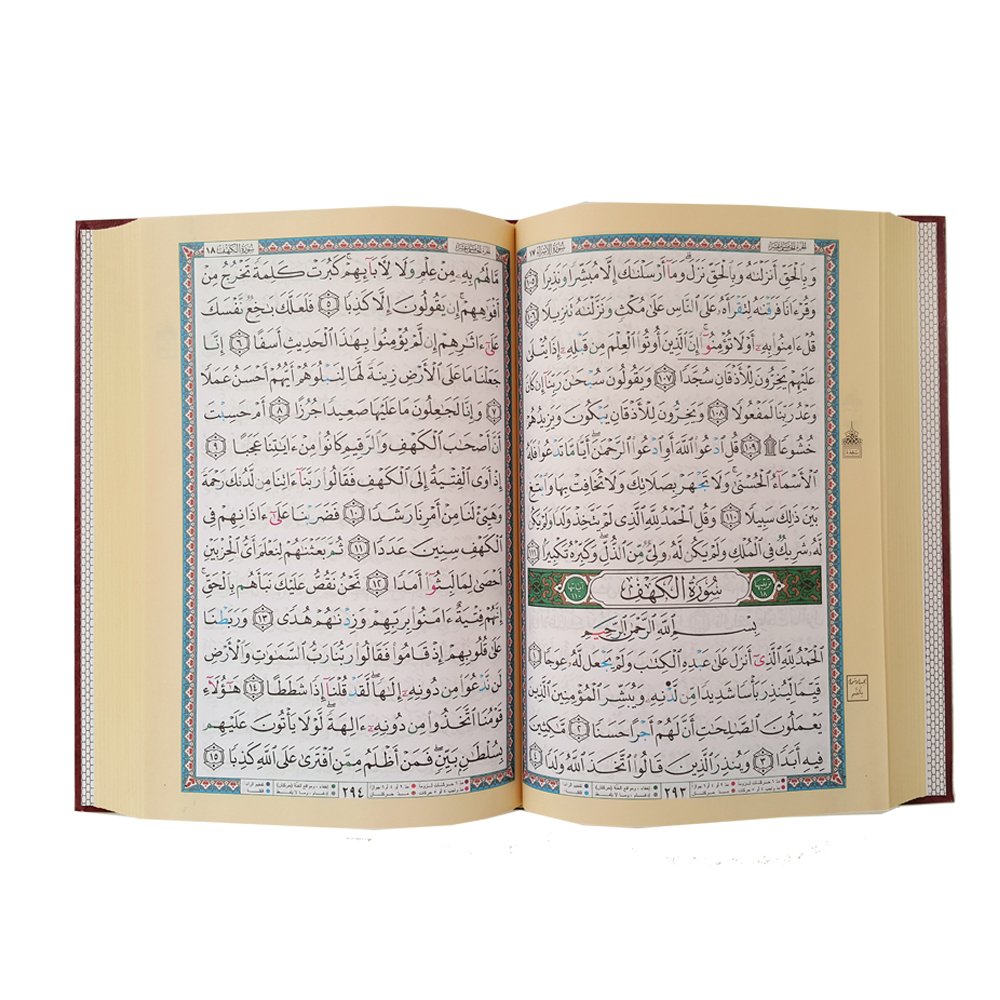 سُورَةُ الإِسْرَاء ١٧
الجزء الخامس عشر
وَبِالْحَقِّ أَنزَلْنَٰهُ وَبِالْحَقِّ نَزَلَ وَمَا أَرْسَلْنَٰكَ إِلَّا مُبَشِّرًا وَنَذِيرًا ١٠٥
وَقُرْءَانًا فَرَقْنَٰهُ لِتَقْرَأَهُ عَلَى النَّاسِ عَلَىٰ مُكْثٍ وَنَزَّلْنَٰهُ تَنزِيلًا ١٠٦
قُلْ ءَامِنُوا بِهِ أَوْ لَا تُؤْمِنُوا إِنَّ الَّذِينَ أُوتُوا الْعِلْمَ مِن قَبْلِهِ إِذَا يُتْلَىٰ
عَلَيْهِمْ يَخِرُّونَ لِلْأَذْقَانِ سُجَّدًا ١٠٧ وَيَقُولُونَ سُبْحَٰنَ رَبِّنَا إِن كَانَ
وَعْدُ رَبِّنَا لَمَفْعُولًا ١٠٨ وَيَخِرُّونَ لِلْأَذْقَانِ يَبْكُونَ وَيَزِيدُهُمْ
خُشُوعًا ۩ ١٠٩ قُلِ ادْعُوا اللَّهَ أَوِ ادْعُوا الرَّحْمَٰنَ أَيًّا مَّا تَدْعُوا فَلَهُ
الْأَسْمَاءُ الْحُسْنَىٰ وَلَا تَجْهَرْ بِصَلَاتِكَ وَلَا تُخَافِتْ بِهَا وَابْتَغِ
بَيْنَ ذَٰلِكَ سَبِيلًا ١١٠ وَقُلِ الْحَمْدُ لِلَّهِ الَّذِي لَمْ يَتَّخِذْ وَلَدًا وَلَمْ يَكُن
لَّهُ شَرِيكٌ فِي الْمُلْكِ وَلَمْ يَكُن لَّهُ وَلِيٌّ مِّنَ الذُّلِّ وَكَبِّرْهُ تَكْبِيرًا ١١١
ترتيبها ١٨
سُورَةُ الْكَهْفِ
آياتها ١١٠
بِسْمِ اللَّهِ الرَّحْمَٰنِ الرَّحِيمِ
الْحَمْدُ لِلَّهِ الَّذِي أَنزَلَ عَلَىٰ عَبْدِهِ الْكِتَٰبَ وَلَمْ يَجْعَل لَّهُ عِوَجًا ١
قَيِّمًا لِّيُنذِرَ بَأْسًا شَدِيدًا مِّن لَّدُنْهُ وَيُبَشِّرَ الْمُؤْمِنِينَ الَّذِينَ
يَعْمَلُونَ الصَّٰلِحَٰتِ أَنَّ لَهُمْ أَجْرًا حَسَنًا ٢ مَّٰكِثِينَ
فِيهِ أَبَدًا ٣ وَيُنذِرَ الَّذِينَ قَالُوا اتَّخَذَ اللَّهُ وَلَدًا ٤
٢٩٣
سُورَةُ الْكَهْفِ ١٨
الجزء الخامس عشر
مَّا لَهُم بِهِ مِنْ عِلْمٍ وَلَا لِآبَائِهِمْ كَبُرَتْ كَلِمَةً تَخْرُجُ مِنْ
أَفْوَٰهِهِمْ إِن يَقُولُونَ إِلَّا كَذِبًا ٥ فَلَعَلَّكَ بَٰخِعٌ نَّفْسَكَ
عَلَىٰ ءَاثَٰرِهِمْ إِن لَّمْ يُؤْمِنُوا بِهَٰذَا الْحَدِيثِ أَسَفًا ٦ إِنَّا
جَعَلْنَا مَا عَلَى الْأَرْضِ زِينَةً لَّهَا لِنَبْلُوَهُمْ أَيُّهُمْ أَحْسَنُ عَمَلًا
٧ وَإِنَّا لَجَٰعِلُونَ مَا عَلَيْهَا صَعِيدًا جُرُزًا ٨ أَمْ حَسِبْتَ
أَنَّ أَصْحَٰبَ الْكَهْفِ وَالرَّقِيمِ كَانُوا مِنْ ءَايَٰتِنَا عَجَبًا ٩
إِذْ أَوَى الْفِتْيَةُ إِلَى الْكَهْفِ فَقَالُوا رَبَّنَا ءَاتِنَا مِن لَّدُنكَ رَحْمَةً
وَهَيِّئْ لَنَا مِنْ أَمْرِنَا رَشَدًا ١٠ فَضَرَبْنَا عَلَىٰ ءَاذَانِهِمْ فِي
الْكَهْفِ سِنِينَ عَدَدًا ١١ ثُمَّ بَعَثْنَٰهُمْ لِنَعْلَمَ أَيُّ الْحِزْبَيْنِ
أَحْصَىٰ لِمَا لَبِثُوا أَمَدًا ١٢ نَّحْنُ نَقُصُّ عَلَيْكَ نَبَأَهُم بِالْحَقِّ
إِنَّهُمْ فِتْيَةٌ ءَامَنُوا بِرَبِّهِمْ وَزِدْنَٰهُمْ هُدًى ١٣ وَرَبَطْنَا
عَلَىٰ قُلُوبِهِمْ إِذْ قَامُوا فَقَالُوا رَبُّنَا رَبُّ السَّمَٰوَٰتِ وَالْأَرْضِ
لَن نَّدْعُوَا مِن دُونِهِ إِلَٰهًا لَّقَدْ قُلْنَا إِذًا شَطَطًا ١٤ هَٰؤُلَاءِ
قَوْمُنَا اتَّخَذُوا مِن دُونِهِ ءَالِهَةً لَّوْلَا يَأْتُونَ عَلَيْهِم
بِسُلْطَٰنٍ بَيِّنٍ فَمَنْ أَظْلَمُ مِمَّنِ افْتَرَىٰ عَلَى اللَّهِ كَذِبًا ١٥
٢٩٤